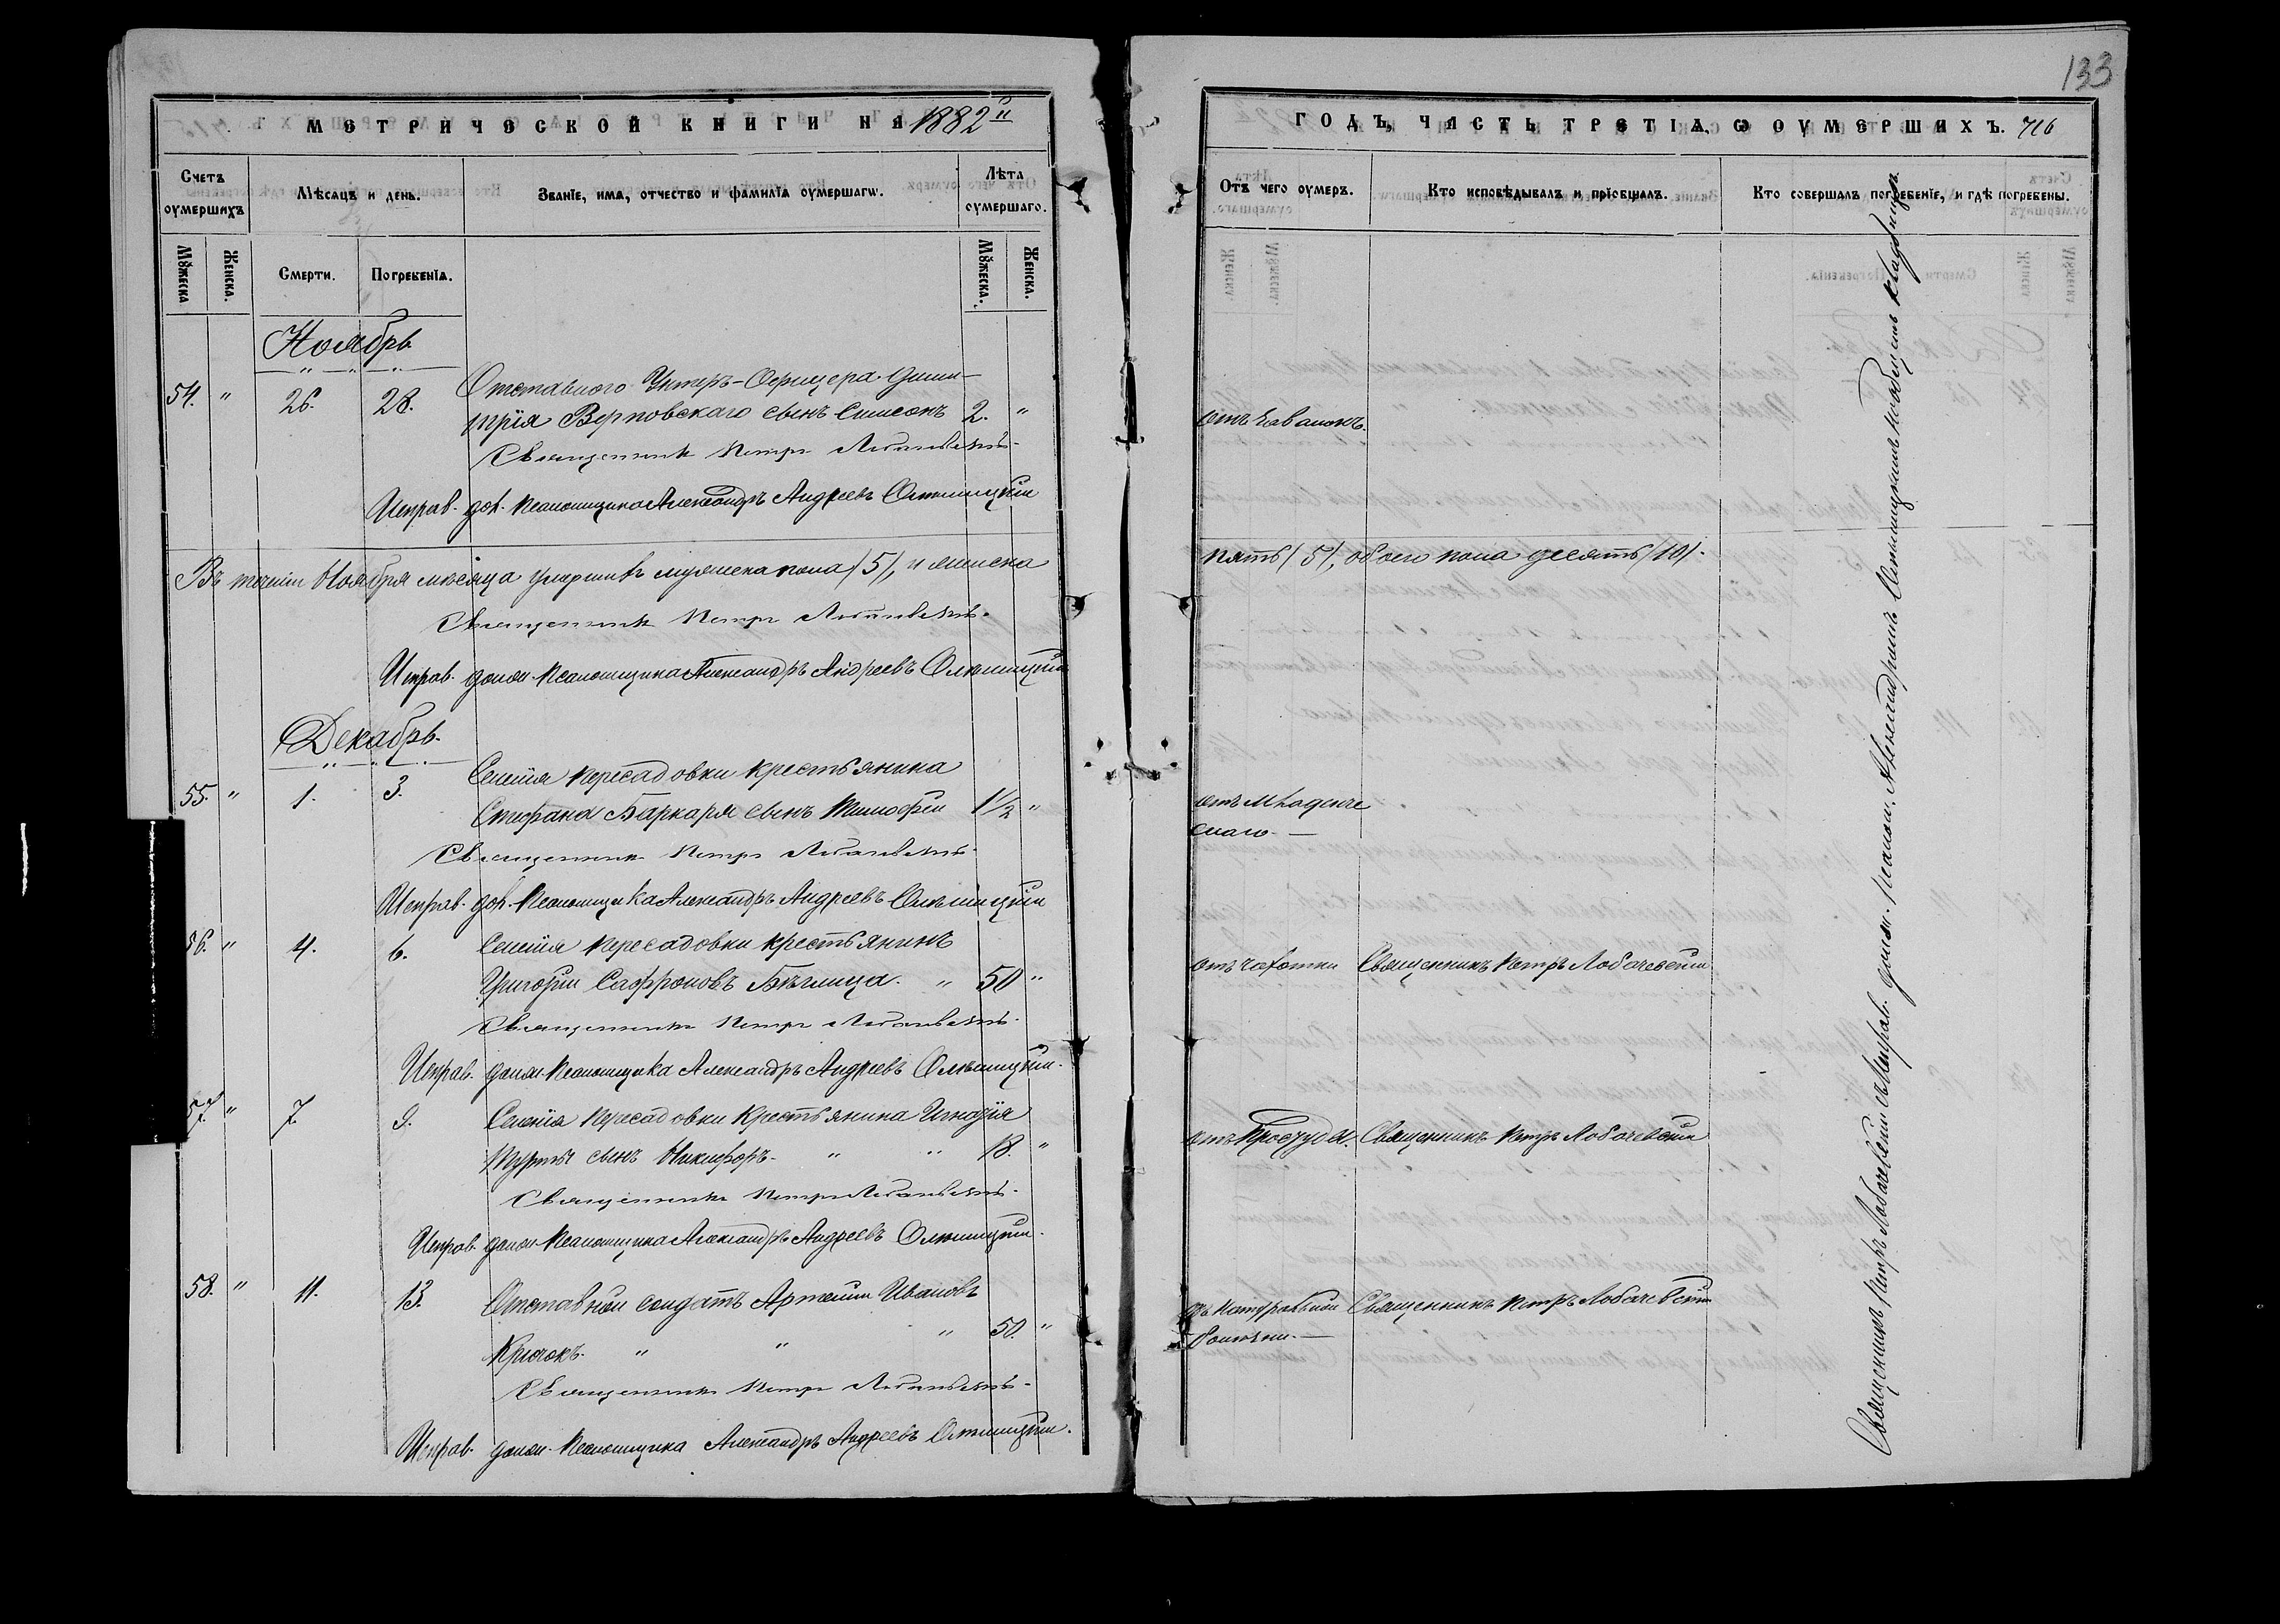 МЕТРИЧЕСКОЙ КНИГИ НА 1882й
Счетъ оумершихъ
Мѣсяцъ и день.
Званїе, имя, отчество и фамилїя оумершагѡ.
Лѣта оумершаго.
Мꙋжеска
Женска.
Смерти.
Погребенїя.
Мꙋжеска.
Женска.
Ноябрь
54. " 26. 28. Отставного Унтеръ-Офицера Дими-
трія Верповскаго сынъ Симеонъ 2. "
Священникъ Петръ Лобачевскій
Исправ. дол. Псаломщика Александръ Андреевъ
Въ теченіи Ноября мѣсяца умершихъ мужеска пола /5/, и женска
Священникъ Петръ Лобачевскій.
Исправ. долж. Псаломщика Александръ Андреевъ
Декабрь.
55. " 1. 3. Селенія Пересадовки крестьянина
Стефана Баркаря сынъ Тимофей 1½ "
Священникъ Петръ Лобачевскій
Исправ. дол. Псаломщика Александръ Андреевъ
56. " 4. 6. Селенія Пересадовки крестьянинъ
Григорій Сафроновъ Бѣглица. " 50 "
Священникъ Петръ Лобачевскій.
Исправ. долж. Псаломщика Александръ Андреевъ
57. " 7. 9. Селенія Пересадовки крестьянина Игнатія
сынъ Никифоръ. " " 18. "
Священникъ Петръ Лобачевскій.
Исправ. долж. Псаломщика Александръ Андреевъ
58. " 11. 13. Отставной солдатъ Артемій Ивановъ
Крючокъ. " " " 50. "
Священникъ Петръ Лобачевскій.
Исправ. долж. Псаломщика Александръ Андреевъ
133
ГОДЪ, ЧАСТЬ ТРЕТІѦ, Ѡ ОУМЕРШИХЪ. 716
Отъ чего оумеръ.
Кто исповѣдывалъ и прїобщалъ.
Кто совершалъ погребенїе, и гдѣ погребены.
отъ
пять /5/, обоего пола десять /10/.
отъ младенче
скаго
отъ чахотки Священникъ Петръ Лобачевскій
отъ простуды. Священникъ Петръ Лобачевскій
отъ натуральной Священникъ Петръ Лобачевскій
болѣзни.
Священникъ Петръ Лобачевскій съ Исправ. долж. Псалом. Александромъ на общемъ кладбищѣ.